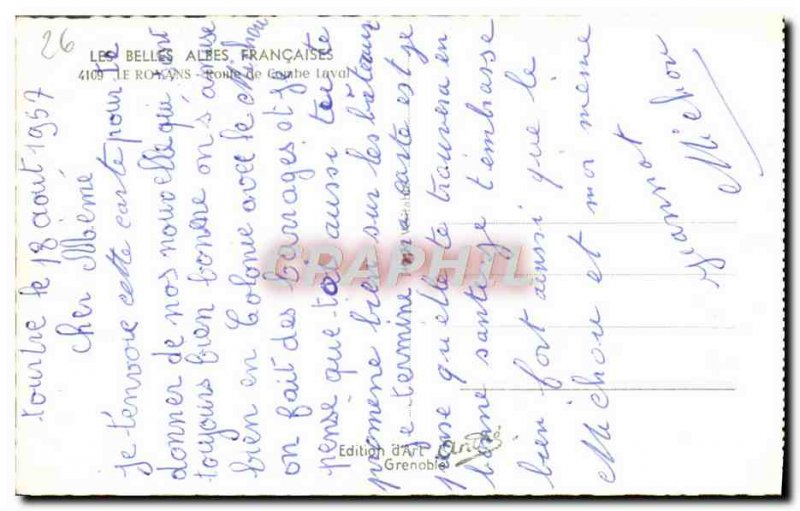 26
LES BELLES ALPES FRANÇAISES
4109 LE ROYANS - Route de Combe Laval
tourtre le 18 aout 1957
cher Mémé
je t'envoie cette carte pour te
donner de nos nouvelle qui sont
toujours bien bonne on s'amuse
bien en Colonie avec le Michou
on fait des barrages et je
pense que toi aussi tu te
promene bien sur les bâteaux
je termine ma carte et je
pense qu'elle te trouvera en
bonne santé je t'embrasse
bien fort ainsi que le
Michou et moi même
Jeannot
Michou
GRAPHIL
Edition d'Art
Grenoble